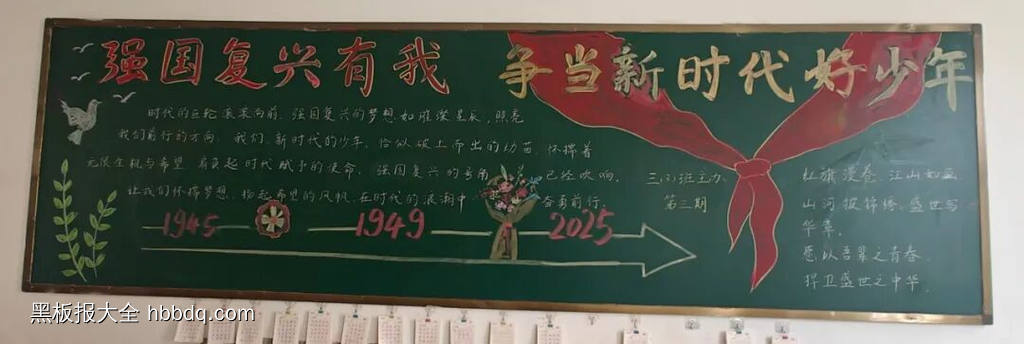 强国复兴有我 争当新时代好少年
时代的巨轮滚滚向前，强国复兴的梦想如璀璨星辰，照亮
我们前行的方向。我们，新时代的少年，恰似破土而出的幼苗，怀揣着
无限生机与希望，肩负起时代赋予的使命。强国复兴的号角已经吹响，
让我们怀揣梦想，扬起希望的风帆，在时代的浪潮中奋勇前行。
1945 1949 2025
三(3)班主办
第三期
红旗漫卷，江山如画，
山河披锦绣，盛世写
华章。
愿以吾辈之青春
捍卫盛世之中华。
黑板报大全 hbbdq.com